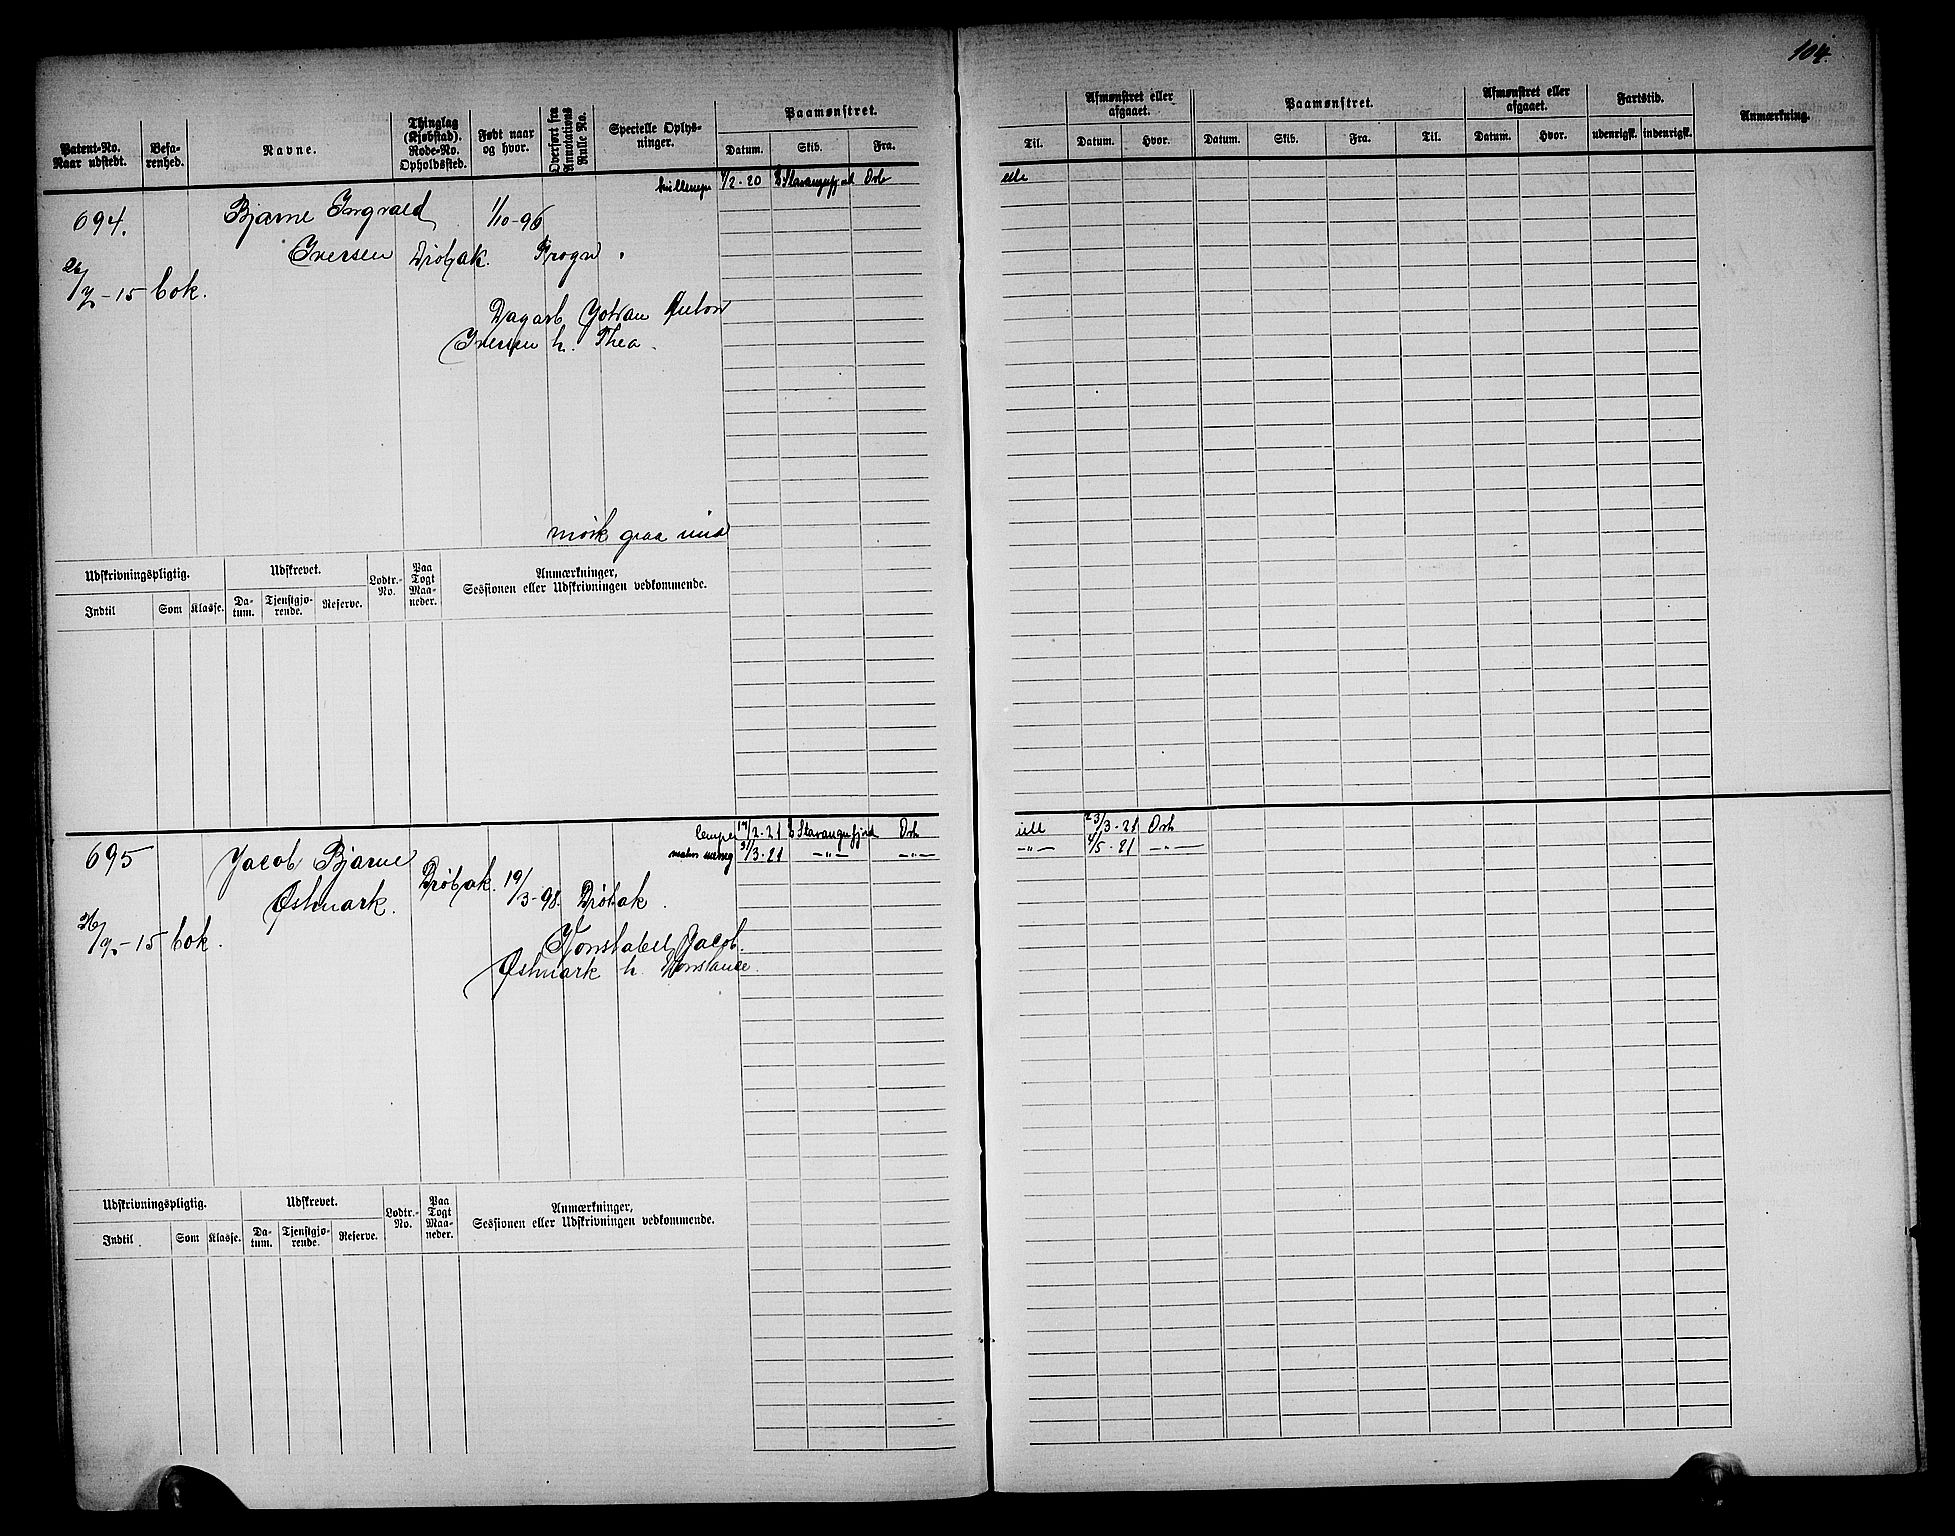 104.
Patent-No. Naar udstedt.
Befarenhed.
Navne.
Thinglag (Kjøbstad). Rode-No. Opholdssted.
Født naar og hvor.
Overført fra Annotations Rulle No.
Specielle Oplysninger.
Paamønstret.
Datum. Skib. Fra.
Til.
Afmønstret eller afgaaet.
Datum. Hvor.
Paamønstret.
Datum. Skib. Fra. Til.
Afmønstret eller afgaaet.
Datum. Hvor.
Fartstid.
udenrigsk. indenrigsk.
Anmærkning.
2-20 Stavangerfjord
694. Bjarne Ingvald 1/10-96
Iversen Drøbak. Frogn.
-15 kok.
Dagarb Johan Anton
Iversen h. Thea.
mørk graa
Udskrivningspligtig. Udskrevet. Lodtr.-No. Paa Togt Maaneder. Anmærkninger, Sessionen eller Udskrivningen vedkommende.
Indtil Som Klasse. Datum. Tjenstgjørende. Reserve.
2-21 Stavangerfjord 23/3-21
695 3-21 —"— —"— —"— 4/5-21 —"—
Jacob Bjarne
Østmark. Drøbak. 19/3-98. Drøbak.
-15 kok.
Konstabel Jacob
Østmark h. Konstance.
Udskrivningspligtig. Udskrevet. Lodtr.-No. Paa Togt Maaneder. Anmærkninger, Sessionen eller Udskrivningen vedkommende.
Indtil Som Klasse. Datum. Tjenstgjørende. Reserve.